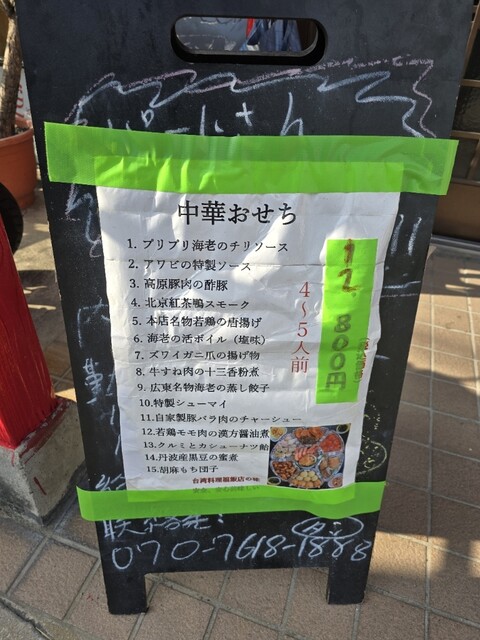 中華おせち
1. プリプリ海老のチリソース
2. アワビの特製ソース
3. 高原豚肉の酢豚
4. 北京紅茶鴨スモーク
5. 本店名物若鶏の唐揚げ
6. 海老の活ボイル（塩味）
7. ズワイガニ爪の揚げ物
8. 牛すね肉の十三香粉煮
9. 広東名物海老の蒸し餃子
10.特製シューマイ
11.自家製豚バラ肉のチャーシュー
12.若鶏モモ肉の漢方醤油煮
13.クルミとカシューナツ飴
14.丹波産黒豆の蜜煮
15.胡麻もち団子
4～5人前
12.800円
台湾料理福飯店の味
070-7618-1888